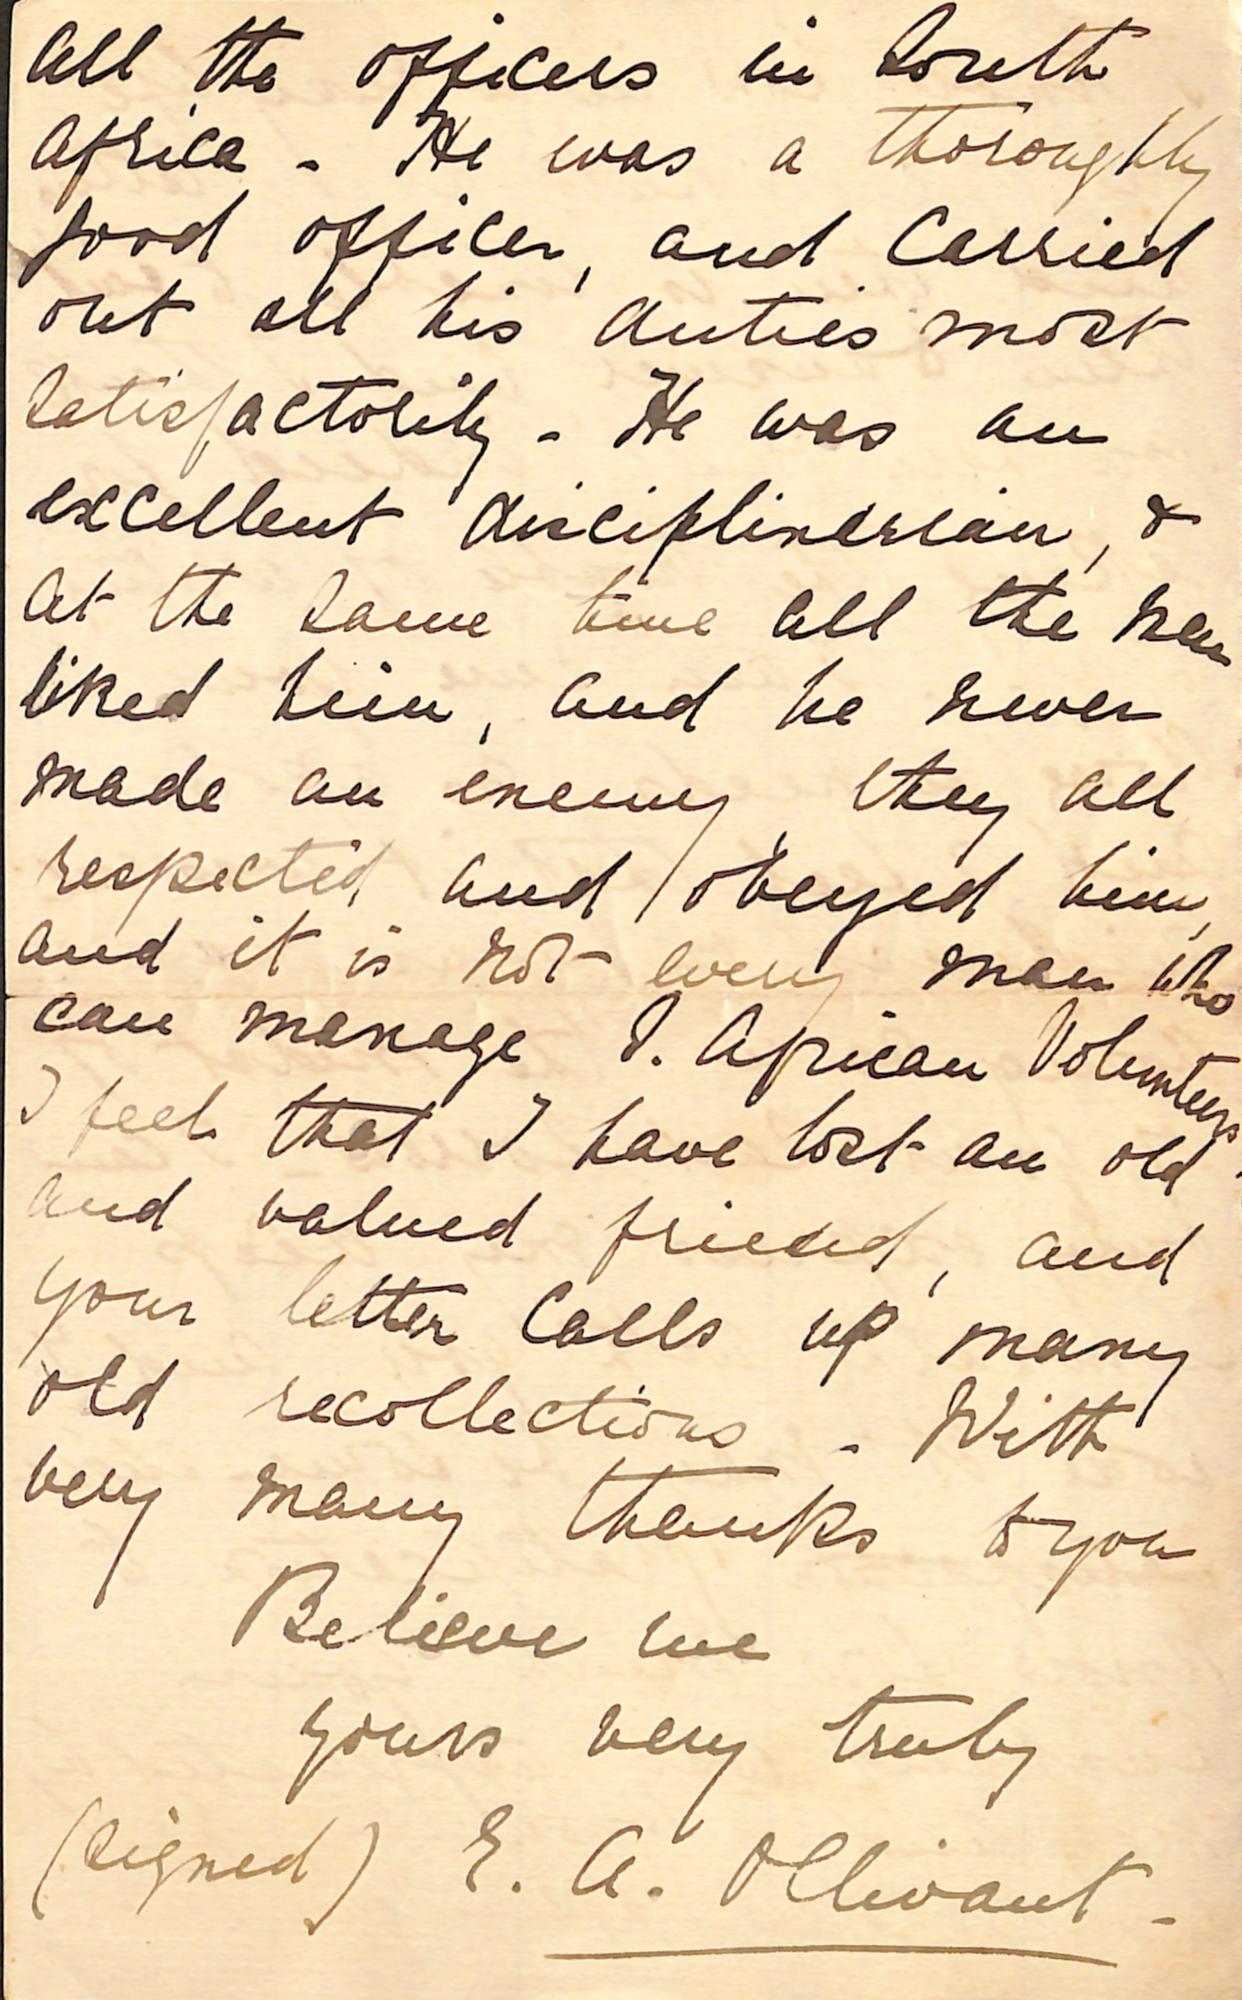 all the officers in South
Africa - He was a thoroughly
good officer, and carried
out all his duties most
satisfactorily - He was an
excellent disciplinarian, &
at the same time all the men
liked him, and he never
made an enemy, they all
respected and obeyed him,
and it is not every man who
can manage S. African Volunteers.
I feel that I have lost an old
and valued friend, and
your letter calls up many
old recollections - With
very many thanks to you
Believe me
yours very truly
(signed) E. A. Ollivant -